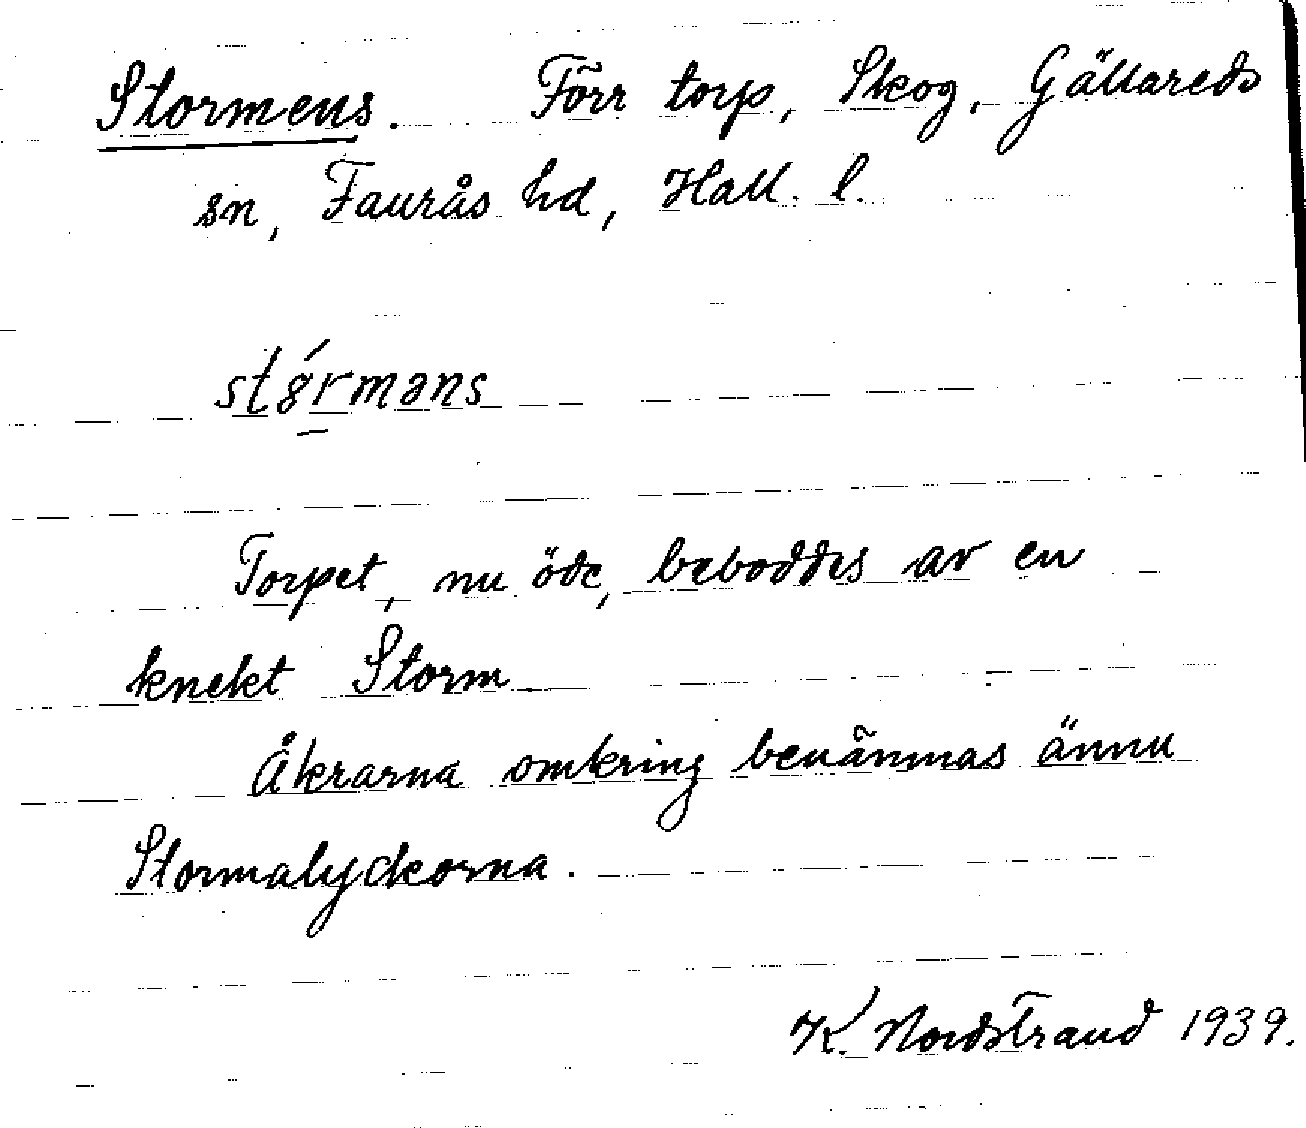 Stormens. Förr torp, Skog, Gällareds
sn, Faurås hd, Hall. l.
stórmans
Torpet, nu öde, beboddes av en
knekt Storm
Åkrarna omkring benämnas ännu
Stormalyckorna.
K. Nordstrand 1939.